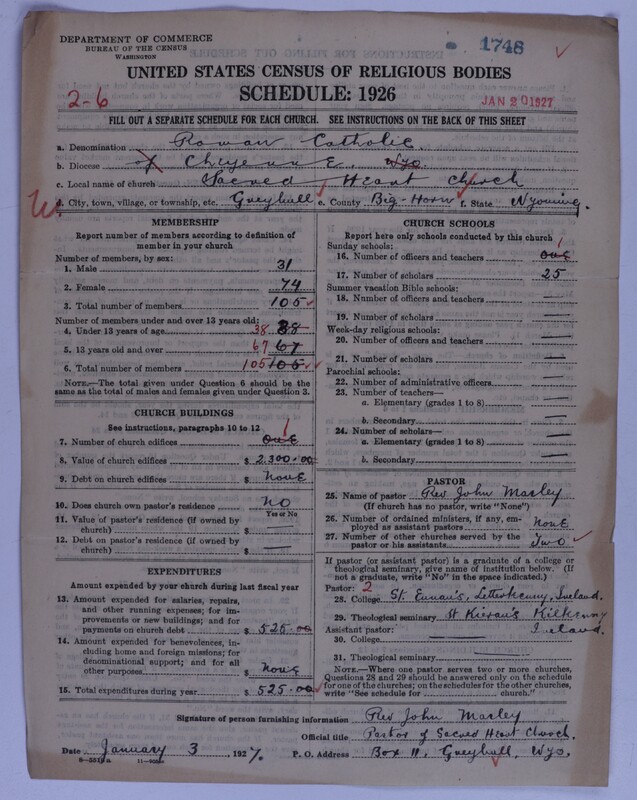 DEPARTMENT OF COMMERCE
BUREAU OF THE CENSUS
WASHINGTON
1748
UNITED STATES CENSUS OF RELIGIOUS BODIES
SCHEDULE: 1926
2-6
JAN 20 1927
FILL OUT A SEPARATE SCHEDULE FOR EACH CHURCH. SEE INSTRUCTIONS ON THE BACK OF THIS SHEET
a. Denomination Roman Catholic
b. Diocese of Cheyenne, Wyo.
c. Local name of church Sacred Heart Church
d. City, town, village, or township, etc. Greybull e. County Big-Horn f. State Wyoming.
MEMBERSHIP
Report number of members according to definition of
member in your church
Number of members, by sex:
1. Male 31
2. Female 74
3. Total number of members 105
Number of members under and over 13 years old:
4. Under 13 years of age 38 38
5. 13 years old and over 67 67
6. Total number of members 105 105
NOTE.—The total given under Question 6 should be
the same as the total of males and females given under Question 3.
CHURCH BUILDINGS
See instructions, paragraphs 10 to 12
7. Number of church edifices one 1
8. Value of church edifices $ 2.300.00
9. Debt on church edifices $ None
10. Does church own pastor's residence? No
Yes or No
11. Value of pastor's residence (if owned by
church) $
12. Debt on pastor's residence (if owned by
church) $ —
EXPENDITURES
Amount expended by your church during last fiscal year
13. Amount expended for salaries, repairs,
and other running expenses; for im-
provements or new buildings; and for
payments on church debt $ 525.00
14. Amount expended for benevolences, in-
cluding home and foreign missions; for
denominational support; and for all
other purposes $ None
15. Total expenditures during year $ 525.00
CHURCH SCHOOLS
Report here only schools conducted by this church
Sunday schools:
16. Number of officers and teachers one 1
17. Number of scholars 25
Summer vacation Bible schools:
18. Number of officers and teachers —
19. Number of scholars —
Week-day religious schools:
20. Number of officers and teachers —
21. Number of scholars —
Parochial schools:
22. Number of administrative officers —
23. Number of teachers—
a. Elementary (grades 1 to 8) —
b. Secondary —
24. Number of scholars—
a. Elementary (grades 1 to 8) —
b. Secondary —
PASTOR
25. Name of pastor Rev John Marley
(If church has no pastor, write "None")
26. Number of ordained ministers, if any, em-
ployed as assistant pastors None
27. Number of other churches served by the
pastor or his assistants Two
If pastor (or assistant pastor) is a graduate of a college or
theological seminary, give name of institution below. (If
not a graduate, write "No" in the space indicated.)
Pastor: 2
28. College St. Eunan's, Letterkenny, Ireland.
29. Theological seminary St Kieran's Kilkenny
Ireland.
Assistant pastor:
30. College —
31. Theological seminary —
NOTE.—Where one pastor serves two or more churches,
Questions 28 and 29 should be answered only on the schedule
for one of the churches; on the schedules for the other churches,
write "See schedule for church."
Signature of person furnishing information Rev John Marley
Official title Pastor of Sacred Heart Church.
Date January 3, 1927. P. O. Address Box 11, Greybull, Wyo.